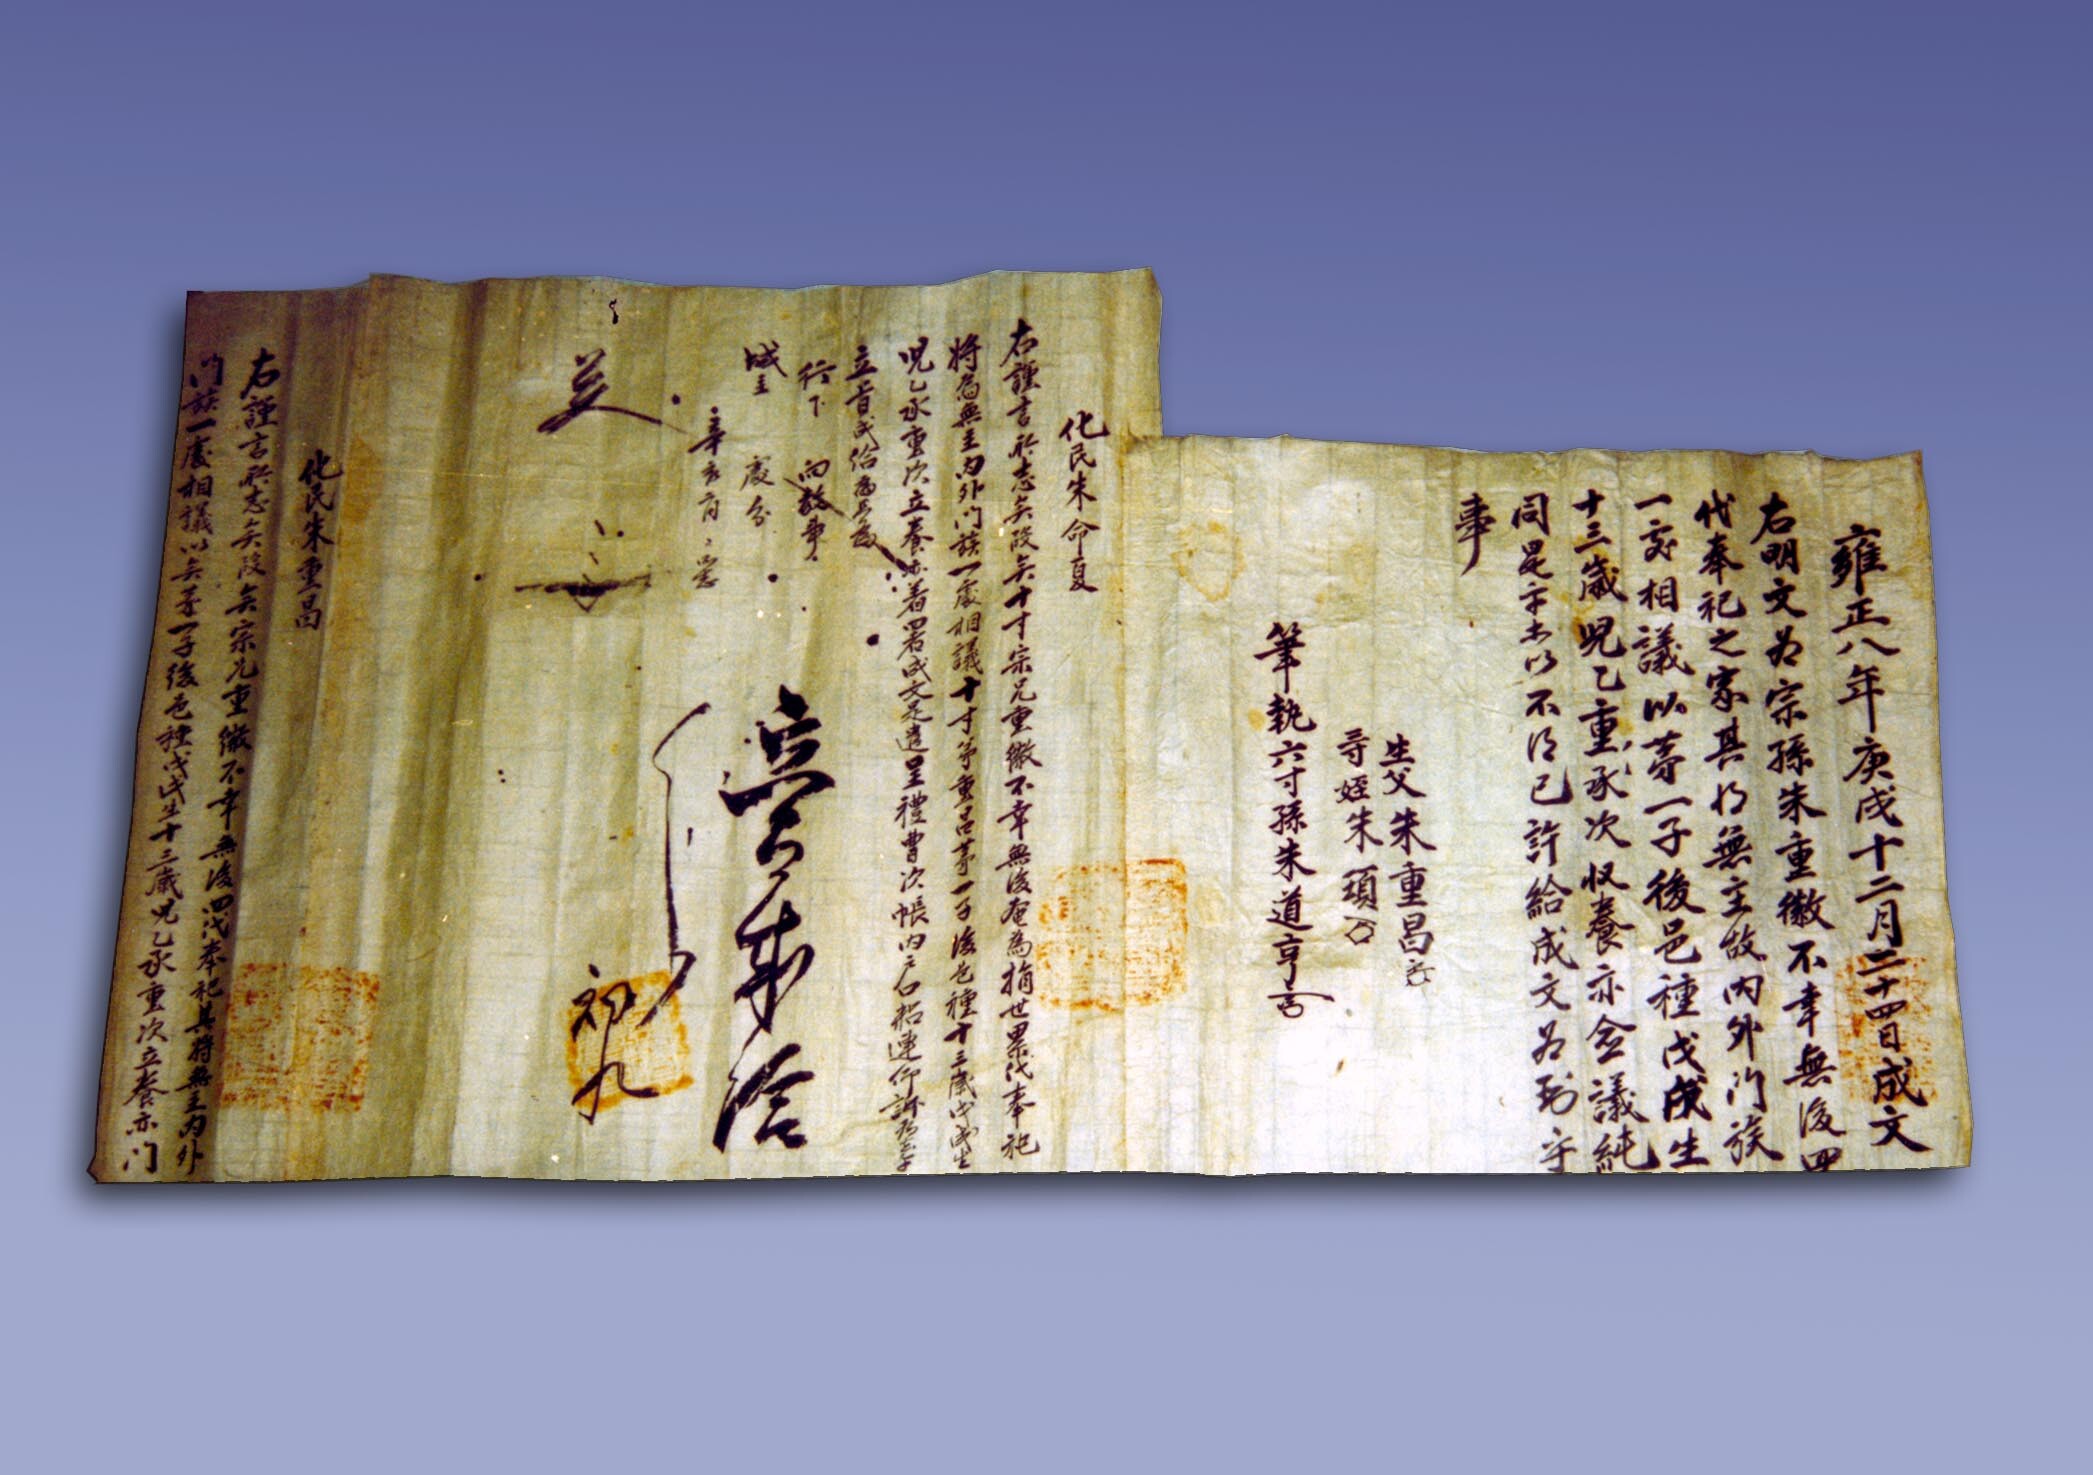 雍正八年庚戌十二月二十四日成文
右明文为宗孫朱重徽不幸無後四
代奉祀之家其将無主故内外门族
一處相議以第一子後邑種戊戌生
十三歲兒乙重承次收養亦僉議純
同是乎以不得已許給成文为
事
生父朱重昌
寺姪朱頊
筆執六寸孫朱道亨
化民朱命夏
右謹言所志矣段矣十寸宗兄重徽不幸無後奄為捐世累代奉祀
將為無主内外门族一處相議十寸弟重昌第一子後邑種十三歲戊戌生
兒乙承重次立養亦着署成文是遣呈禮曹次帳内戶口粘連仰訴為
立旨成給為只為
行下 向教事
城主 處分
辛亥 月 日
立旨成給
初九
化民朱重昌
右謹言所志矣段矣宗兄重徽不幸無後四代奉祀其將無主内外
门族一處相議以矣第一子後邑種戊戌生十三歲兒乙承重次立養亦门